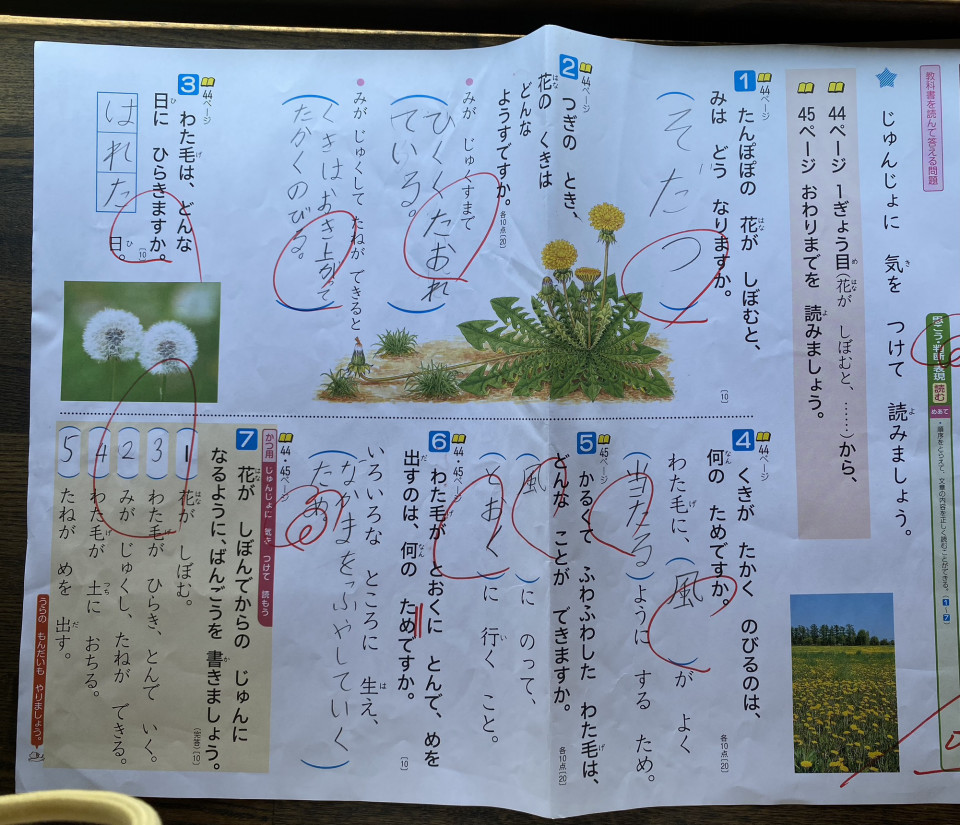 教科書を読んで答える問題
じゅんじょに 気を つけて 読みましょう。
44ページ 1ぎょう目(花が しぼむと、……)から、
45ページ おわりまでを 読みましょう。
思こう・判断・表現 読む
めあて
・順序をとらえて、文章の内容を正しく読むことができる。(1~7)
1 44ページ
たんぽぽの 花が しぼむと、
みは どう なりますか。
[10]
(そだつ)
2 44ページ
つぎの とき、
花の くきは
どんな
ようすですか。
各10点[20]
みが じゅくすまで
(ひくくたおれ
ている。)
みが じゅくして たねが できると
(くきは、おき上がって
たかくのびる。)
3 44ページ
わた毛は、どんな
日に ひらきますか。
[10]
はれた 日。
4 44ページ
くきが たかく のびるのは、
何の ためですか。
各10点[20]
わた毛に、(風)が よく
(当たる)ように する ため。
5 45ページ
かるくて ふわふわした わた毛は、
どんな ことが できますか。
各10点[20]
(風)に のって、
(とおく)に 行く こと。
6 44・45ページ
わた毛が とおくに とんで、めを
出すのは、何の ためですか。
[10]
いろいろな ところに 生え、
(なかまをふやしていく
ため)
かつ用 じゅんじょに 気を つけて 読もう
7 44・45ページ
花が しぼんでからの じゅんに
なるように、ばんごうを 書きましょう。
(完答)[10]
1 花が しぼむ。
3 わた毛が ひらき、とんで いく。
2 みが じゅくし、たねが できる。
4 わた毛が 土に おちる。
5 たねが めを 出す。
うらの もんだいも やりましょう。